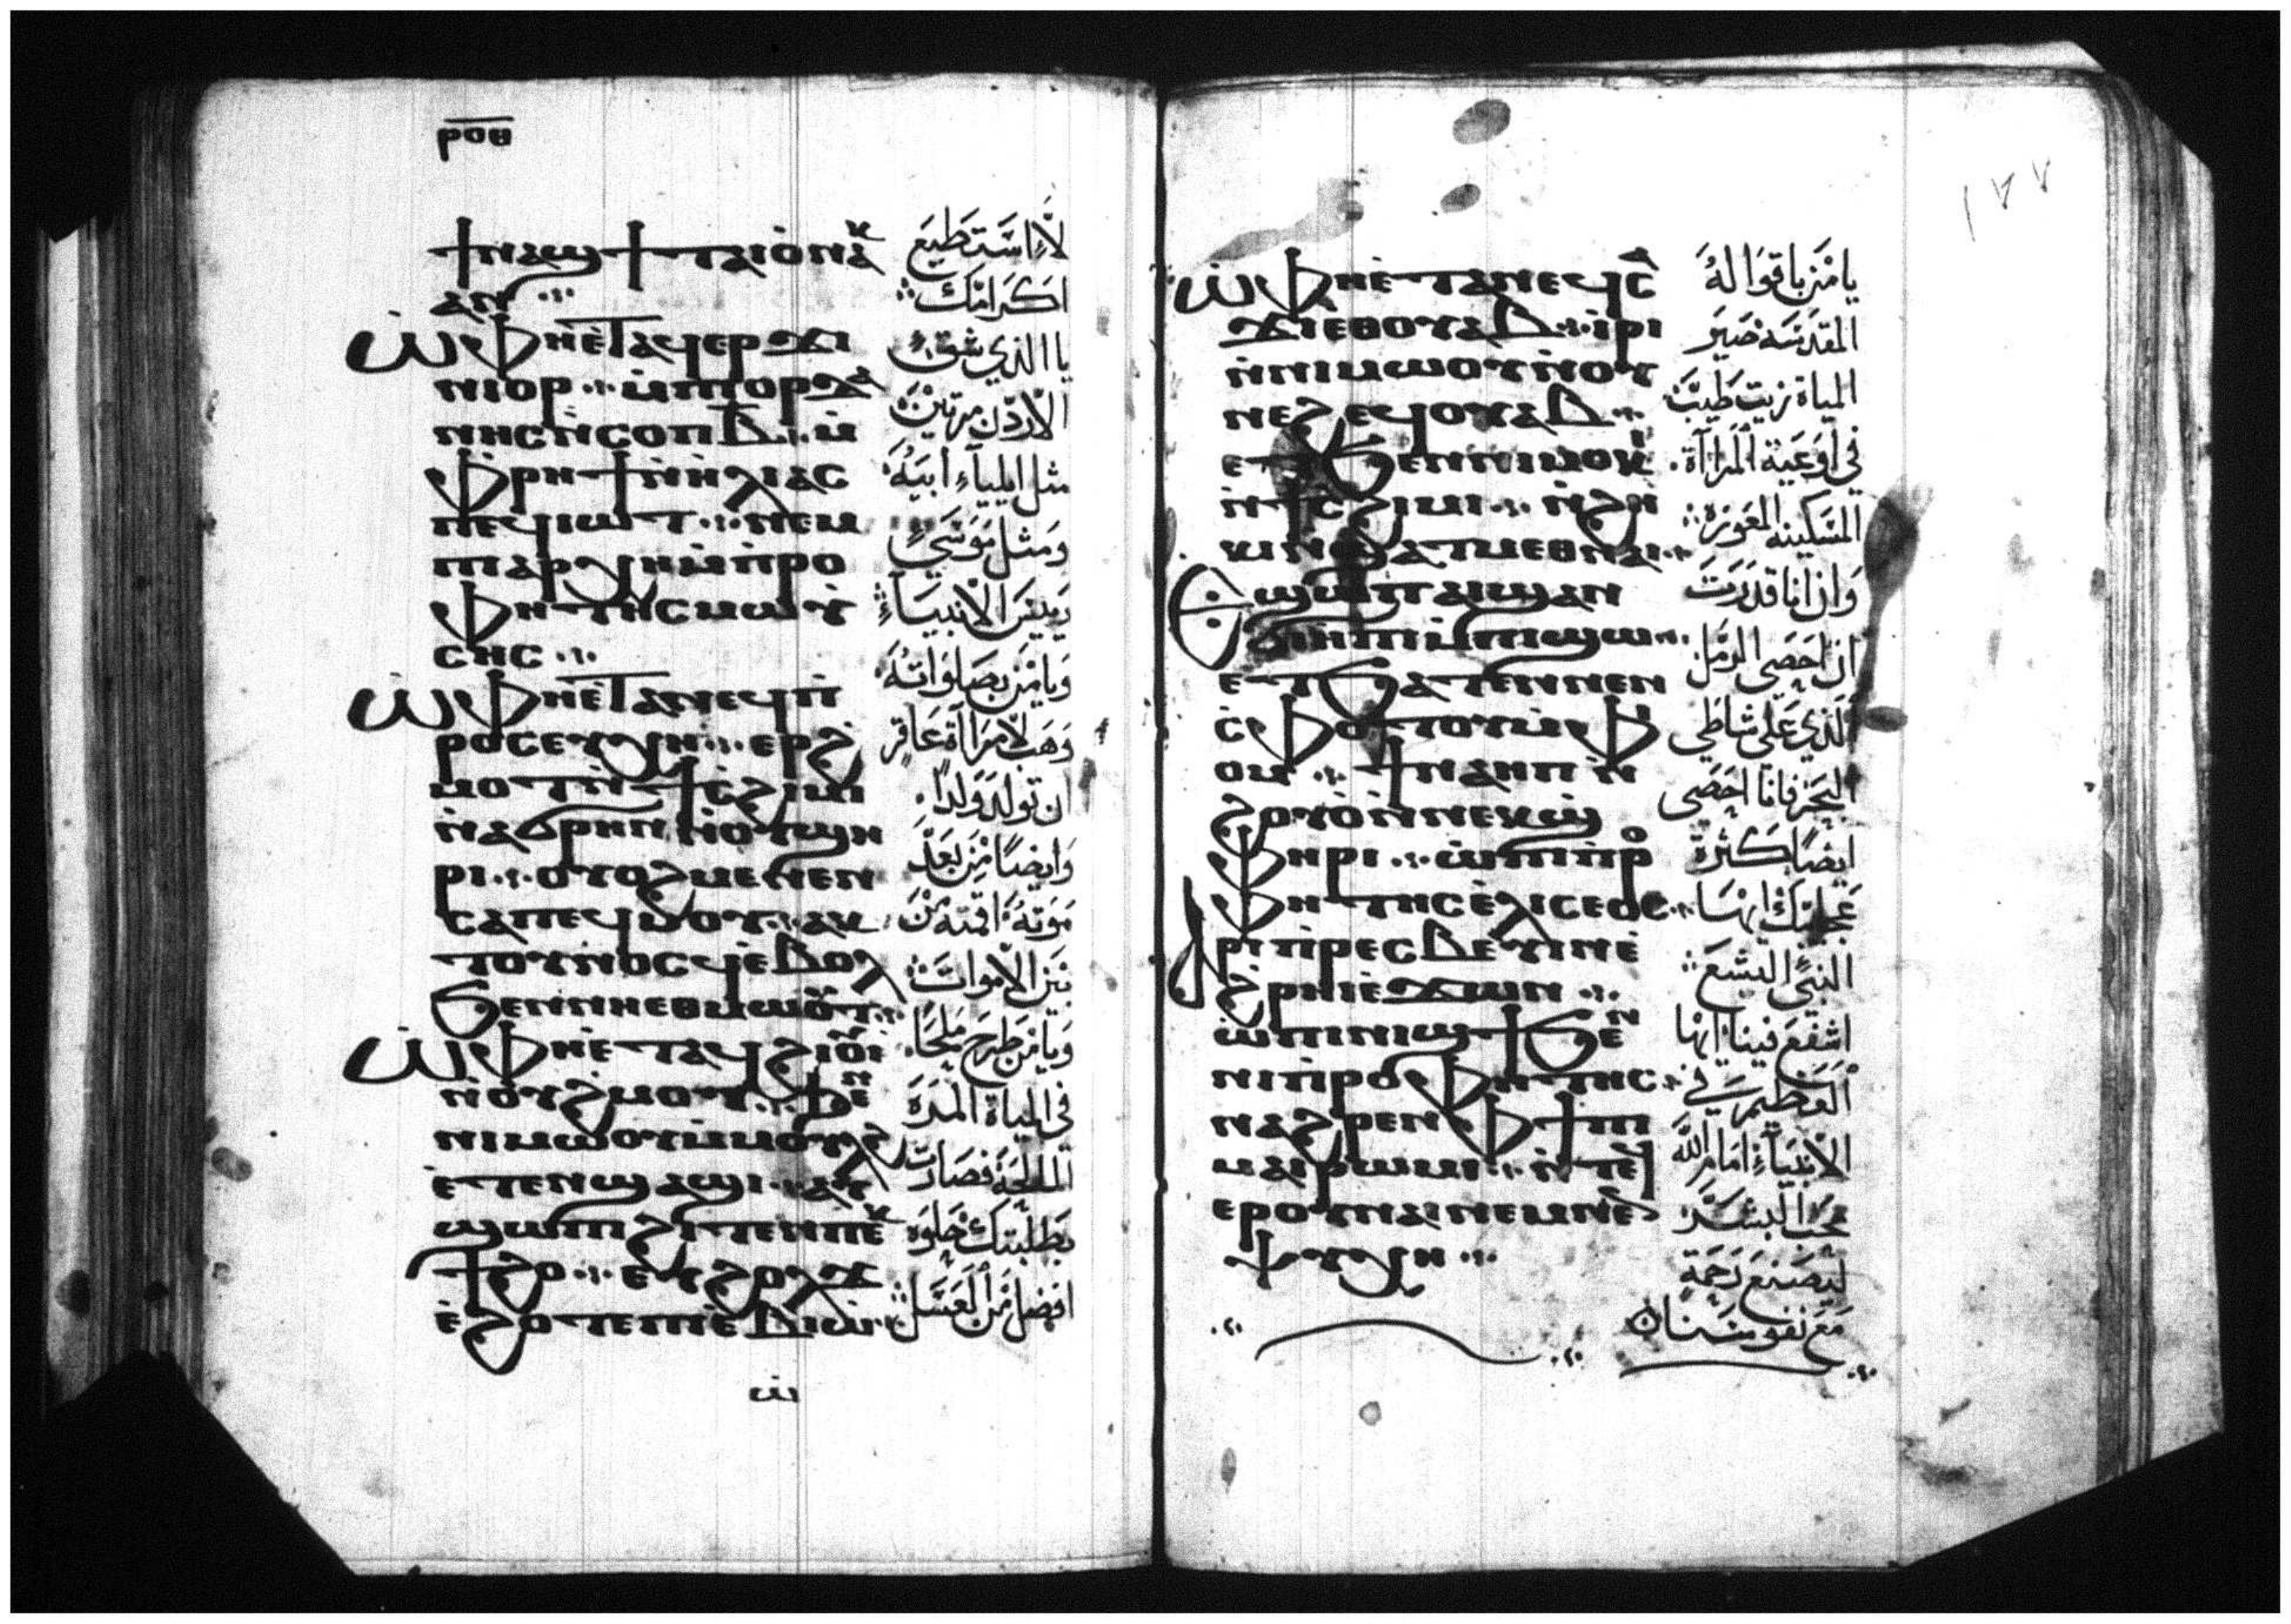 ⲣⲟⲑ
ϯⲛⲁϣϯⲧⲁⲓⲟ̀ⲛⲁⲕ
ⲁⲛ ⁘
ⲱ̀ⲫⲏⲉ̀ⲧⲁϥⲉⲣϫⲓ
ⲛⲓⲟⲣ ⁘ ⲙ̀ⲡⲓⲟⲣⲇⲁ
ⲛⲏⲥⲛ̀ⲥⲟⲡⲃ̅ ⁘ ⲙ̀
ⲫⲣⲏϯⲛ̀ⲏ̀ⲗⲓⲁⲥ
ⲡⲉϥⲓⲱⲧ ⁘ ⲛⲉⲙ
ⲡⲁⲣⲭⲏⲙ̀ⲡ̀ⲣⲟ
ⲫⲏⲧⲏⲥⲙⲱⲩ̀
ⲥⲏⲥ ⁘
ⲱ̀ⲫⲏⲉ̀ⲧⲁⲛⲉϥⲡ̀
ⲣⲟⲥⲉⲩⲭⲏ ⁘ ⲉⲣϩ
ⲙⲟⲧⲛ̀ϯⲥ̀ϩⲓⲙⲓ
ⲛ̀ⲁϭⲣⲏⲛⲛ̀ⲟⲩϣⲏ
ⲣⲓ ⁘ ⲟⲩⲟϩⲙⲉⲛⲉⲛ
ⲥⲁⲡⲉϥⲙⲟⲩ ⁘ ⲁⲕ
ⲧⲟⲩⲛ̀ⲟⲥϥⲉ̀ⲃⲟⲗ
ϧⲉⲛⲛⲏⲉⲑⲙⲱⲟⲩⲧ ⁘
ⲱ̀ⲫⲏⲉ̀ⲧⲁϥϩⲓⲟⲩⲓ̀
ⲛ̀ⲟⲩϩⲙⲟⲩ ⁘ ϧⲉⲛ
ⲛⲓⲙⲱⲟⲩⲙ̀ⲙⲟⲩⲗϩ
ⲉ̀ⲧⲉⲛϣⲁϣⲓ ⁘ ⲁⲩ
ϣⲱⲡⲓϩⲓⲧⲉⲛⲡⲉⲕ
ϯϩⲟ ⁘ ⲉⲩϩⲟⲗϫ
ⲉ̀ϩⲟⲧⲉⲡⲓⲉ̀ⲃⲓⲱ̀ ⁘
ⲱ̀
لا استطيع
اكرامك
يا الذي شق
الاردن مرتين
مثل ايلياء ابيه
ومثل موسي
رييس الانبياء
ويا من بصلواته
وهب لامراة عاقر
ان تولد ولدا
وايضا من بعد
موته اقمته من
بين الاموات
ويا من طرح ملحا
في المياة المرة
المالحة فصارت
بطلبتك حلوه
افضل من العسل
١٧٧
ⲱ̀ⲫⲏⲉ̀ⲧⲁⲛⲉϥⲥⲁ
ϫⲓⲉⲑⲟⲩⲁⲃ ⁘ ⲓ̀ⲣⲓ
ⲛ̀ⲛⲓⲙⲱⲟⲩⲛ̀ⲟⲩ
ⲛⲉϩⲉϥⲟⲩⲁⲃ ⁘
ⲉⲧϧⲉⲛⲛⲓⲙⲟⲕⲓ
ⲛ̀ϯⲥ̀ϩⲓⲙⲓ ⁘ ⲛ̀ϩⲏ
ⲕⲓⲛ̀ⲭⲁⲧⲙⲉⲑⲛⲁⲓ ⁘
ⲉϣⲱⲡⲁⲓϣⲁⲛ
ϭⲓⲏⲡⲓⲙ̀ⲡⲓϣⲱ
ⲉⲧϧⲁⲧⲉⲛⲛⲉⲛ
ⲥ̀ⲫⲟⲧⲟⲩⲙ̀ⲫ
ⲟⲙ ⁘ ϯⲛⲁⲏⲡⲓⲛ̀
ϩⲟⲩⲟ̀ⲛ̀ⲛⲉⲕϣ̀
ⲫⲏⲣⲓ ⁘ ⲱ̀ⲡⲓⲡ̀ⲣⲟ
ⲫⲏⲧⲏⲥⲉ̀ⲗⲓⲥⲉⲟⲥ ⁘
ⲁⲣⲓⲡ̀ⲣⲉⲥⲃⲉⲩⲓⲛⲉ̀
ϩ̀ⲣⲏⲓⲉ̀ϫⲱⲛ ⁘
ⲱ̀ⲡⲓⲛⲓϣϯϧⲉⲛ
ⲛⲓⲡ̀ⲣⲟⲫⲏⲧⲏⲥ ⁘
ⲛⲁϩⲣⲉⲛⲫϯⲡⲓ
ⲙⲁⲓⲣⲱⲙⲓ ⁘ ⲛ̀ⲧⲉϥ
ⲉⲣⲟⲩⲛⲁⲓⲛⲉⲙⲛⲉⲛ
ⲯⲩⲭⲏ ⁘
يا من باقواله
المقدسه صير
المياة زيت طيب
في اوعية المراآة
المسكينه العوزه
وان انا قدرت
ان احصي الرمل
الذي علي شاطي
البحر فانا احصي
ايضا كثرة
عجايبك ايها
النبي اليشع
اشفع فينا ايها
العظيم في
الانبياء امام الله
محب البشر
ليصنع رحمة
مع نفوسنا